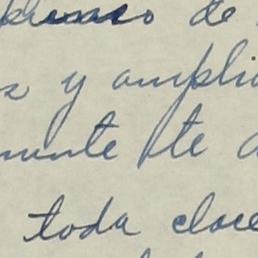 de
y ampli
mente te a
toda clase